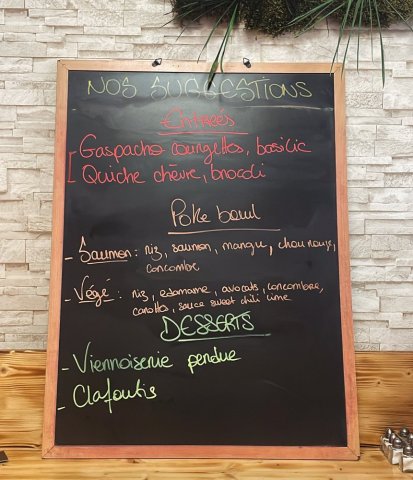 NOS SUGGESTIONS
Entrées
- Gaspacho courgettes, basilic
- Quiche chèvre, brocoli
Poke bowl
- Saumon : riz, saumon, mangue, chou rouge,
concombre
- Végé : riz, edamame, avocats, concombre,
carotte, sauce sweet chili lime
DESSERTS
- Viennoiserie perdue
- Clafoutis